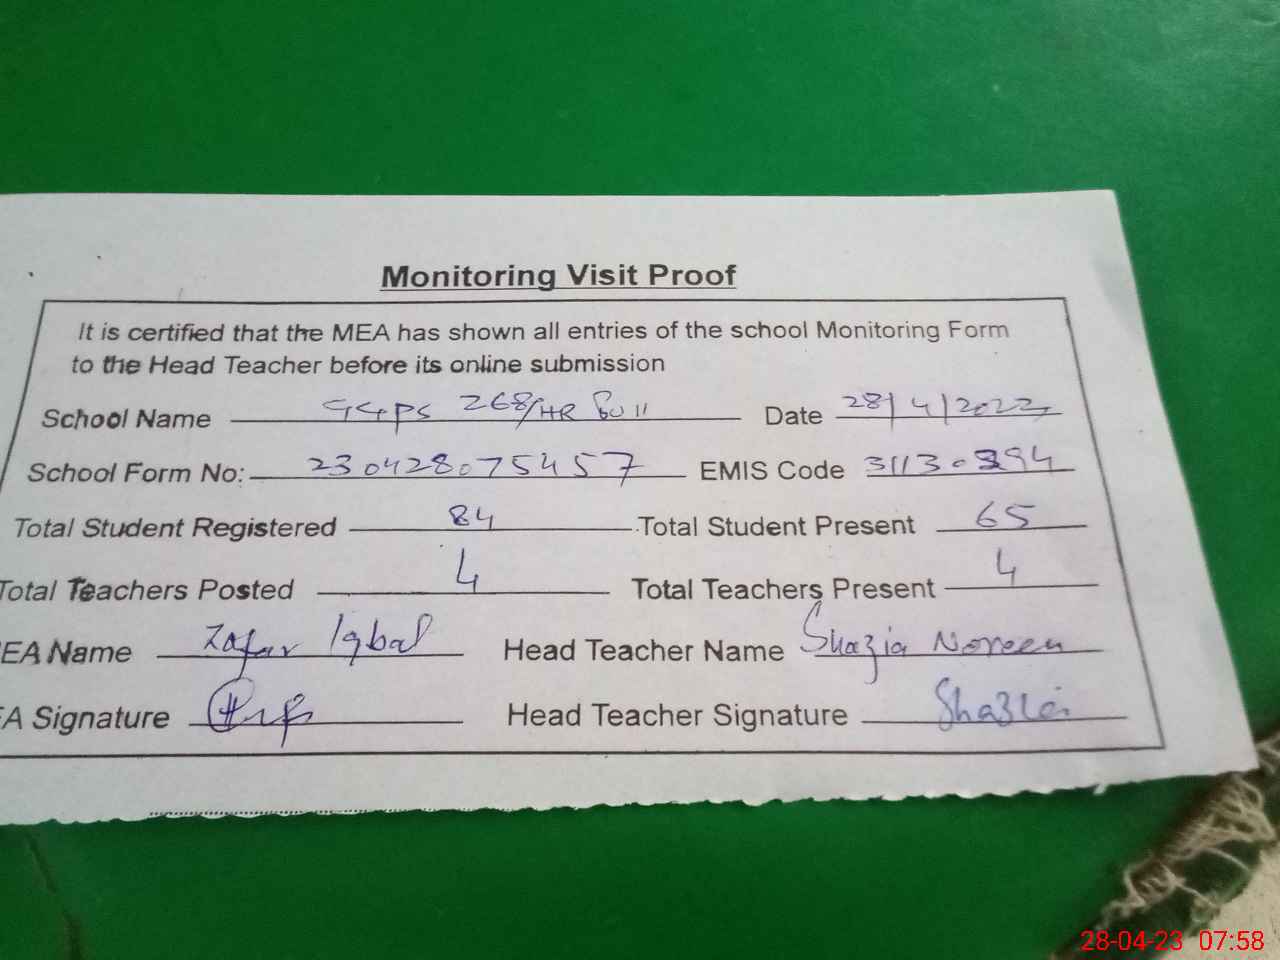 Monitoring Visit Proof
It is certified that the MEA has shown all entries of the school Monitoring Form
to the Head Teacher before its online submission
School Name GGPS 268/HR Date 28/4/2023
School Form No: 230428075457 EMIS Code 31130394
Total Student Registered 84 Total Student Present 65
Total Teachers Posted 4 Total Teachers Present 4
EA Name Zafar Iqbal Head Teacher Name Shazia Noreen
A Signature Head Teacher Signature Shazia
28-04-23 07:58